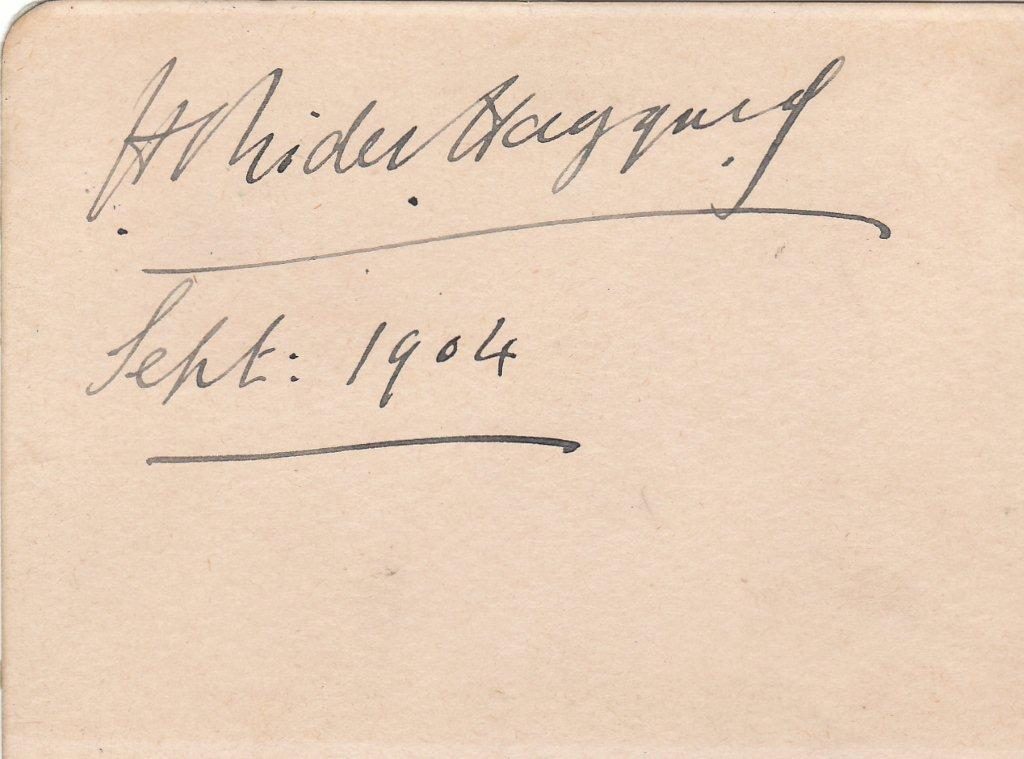 H Rider Haggard
Sept: 1904